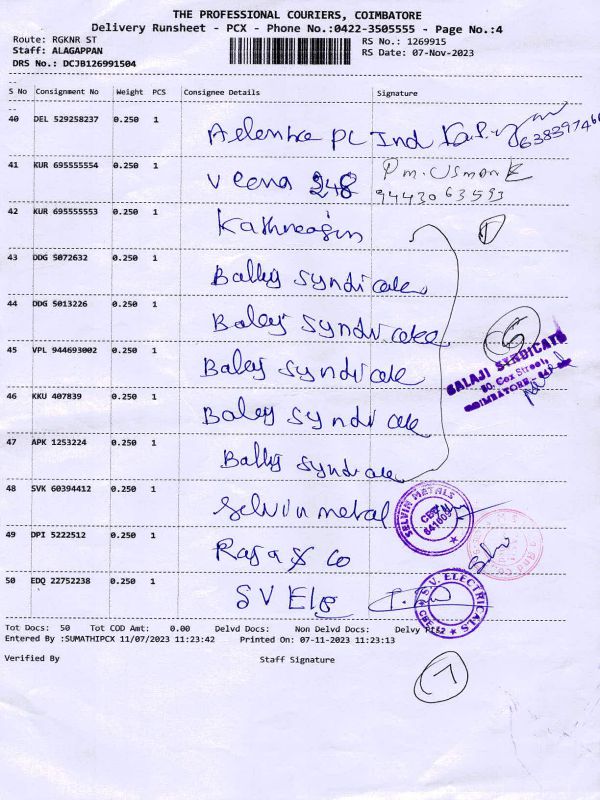 THE PROFESSIONAL COURIERS, COIMBATORE
Delivery Runsheet - PCX - Phone No.:0422-3505555 - Page No.:4
Route: RGKNR ST RS No.: 1269915
Staff: ALAGAPPAN RS Date: 07-Nov-2023
DRS No.: DCJB126991504
S No Consignment No Weight PCS Consignee Details Signature
40 DEL 529258237 0.250 1 PL Ind
41 KUR 695555554 0.250 1 Veena 248 Pm. Usman
9443063593
42 KUR 695555553 0.250 1 1
43 DDG 5072632 0.250 1 Balhj Syndicate
44 DDG 5013226 0.250 1 Balaj Syndicate 5
45 VPL 944693002 0.250 1 Balaj Syndicate
BALAJI SYNDICATE
80, Cox Street,
COIMBATORE
46 KKU 407839 0.250 1 Balaj Syndicate
47 APK 1253224 0.250 1 Balhj Syndicate
48 SVK 60394412 0.250 1 Selvin metal SELVIN METALS
49 DPI 5222512 0.250 1 Raja & Co
50 EDQ 22752238 0.250 1 SV Ele S.V. ELECTRICALS CBE
Tot Docs: 50 Tot COD Amt: 0.00 Delvd Docs: Non Delvd Docs: Delvy
Entered By :SUMATHIPCX 11/07/2023 11:23:42 Printed On: 07-11-2023 11:23:13
Verified By Staff Signature
7